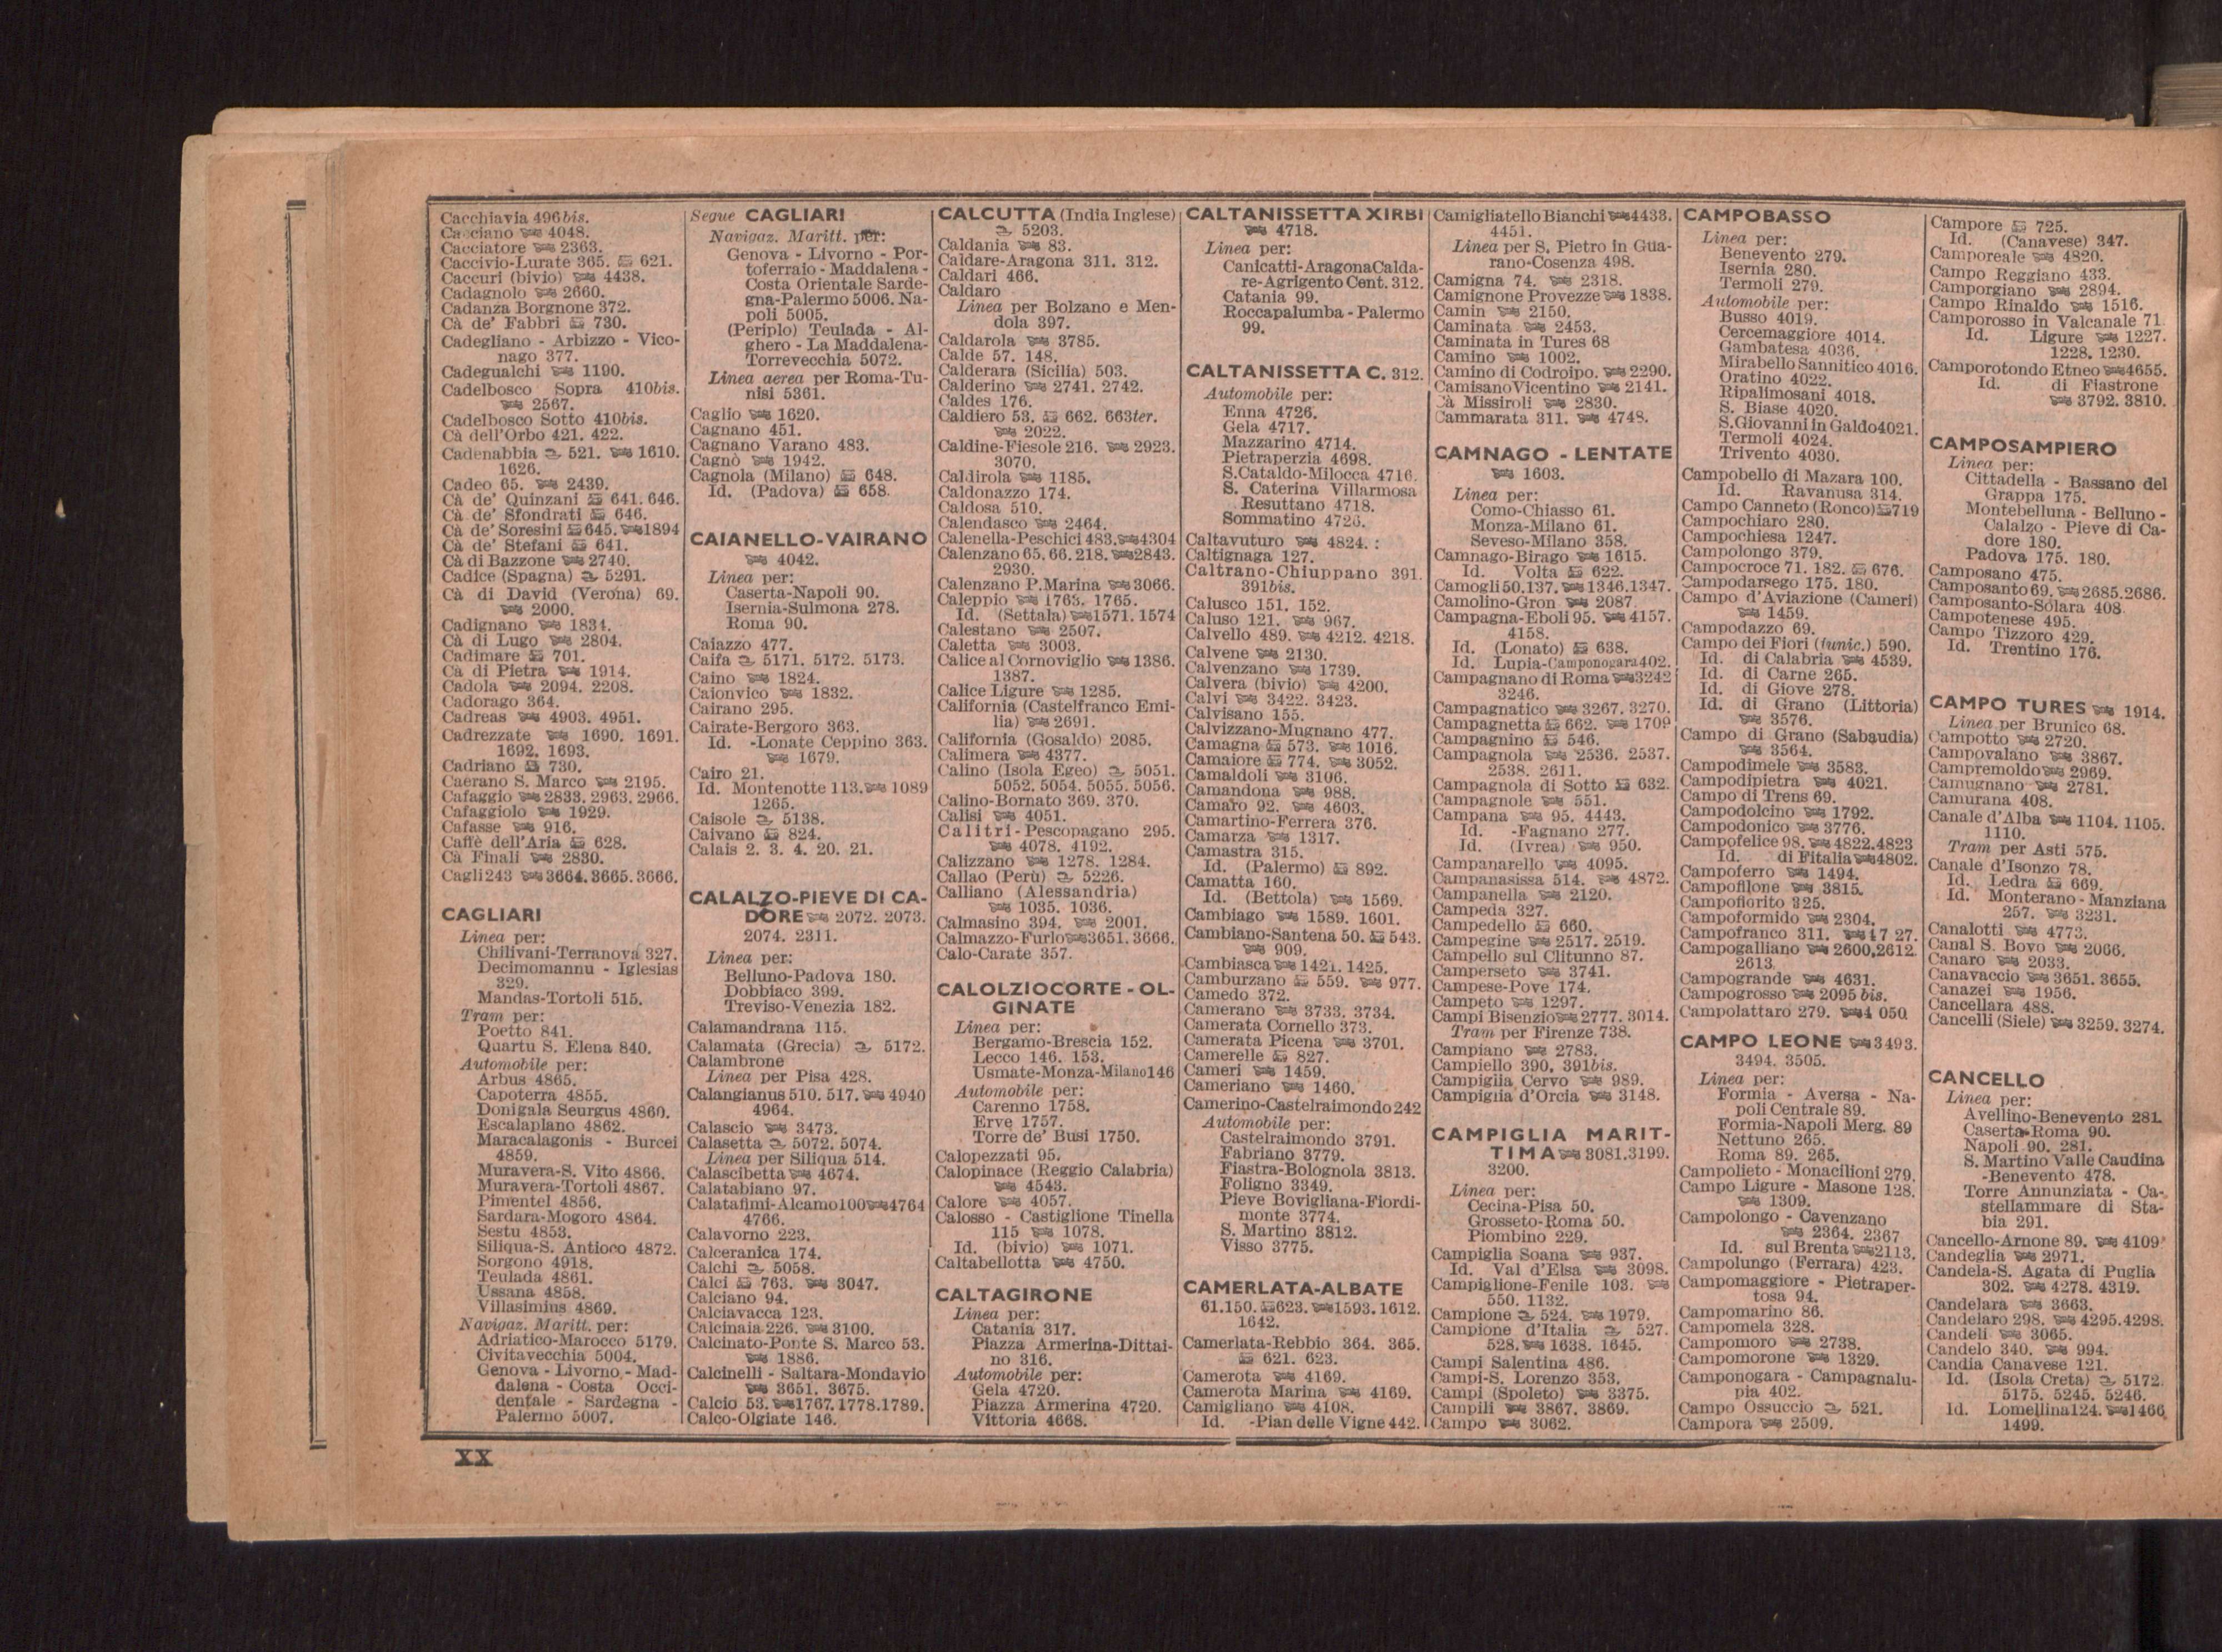 Cacchiavia 496bis.
Cacciano 4048.
Cacciatore 2363.
Caccivio-Lurate 365. 621.
Caccuri (bivio) 4438.
Cadagnolo 2660.
Cadanza Borgnone 372.
Cà de' Fabbri 730.
Cadegliano - Arbizzo - Vico-
nago 377.
Cadegualchi 1190.
Cadelbosco Sopra 410bis.
2567.
Cadelbosco Sotto 410bis.
Cà dell'Orbo 421. 422.
Cadenabbia 521. 1610.
1626.
Cadeo 65. 2439.
Cà de' Quinzani 641. 646.
Cà de' Sfondrati 646.
Cà de' Soresini 645. 1894
Cà de' Stefani 641.
Cà di Bazzone 2740.
Cadice (Spagna) 5291.
Cà di David (Verona) 69.
2000.
Cadignano 1834.
Cà di Lugo 2804.
Cadimare 701.
Cà di Pietra 1914.
Cadola 2094. 2208.
Cadorago 364.
Cadreas 4903. 4951.
Cadrezzate 1690. 1691.
1692. 1693.
Cadriano 730.
Caerano S. Marco 2195.
Cafaggio 2833. 2963. 2966.
Cafaggiolo 1929.
Cafasse 916.
Caffè dell'Aria 628.
Cà Finali 2830.
Cagli 243 3664. 3665. 3666.
CAGLIARI
Linea per:
Chilivani-Terranova 327.
Decimomannu - Iglesias
329.
Mandas-Tortoli 515.
Tram per:
Poetto 841.
Quartu S. Elena 840.
Automobile per:
Arbus 4865.
Capoterra 4855.
Donigala Seurgus 4860.
Escalaplano 4862.
Maracalagonis - Burcei
4859.
Muravera-S. Vito 4866.
Muravera-Tortoli 4867.
Pimentel 4856.
Sardara-Mogoro 4864.
Sestu 4853.
Siliqua-S. Antioco 4872.
Sorgono 4918.
Teulada 4861.
Ussana 4858.
Villasimius 4869.
Navigaz. Maritt. per:
Adriatico-Marocco 5179.
Civitavecchia 5004.
Genova - Livorno - Mad-
dalena - Costa Occi-
dentale - Sardegna -
Palermo 5007.
Segue CAGLIARI
Navigaz. Maritt. per:
Genova - Livorno - Por-
toferraio - Maddalena -
Costa Orientale Sarde-
gna-Palermo 5006. Na-
poli 5005.
(Periplo) Teulada - Al-
ghero - La Maddalena-
Torrevecchia 5072.
Linea aerea per Roma-Tu-
nisi 5361.
Caglio 1620.
Cagnano 451.
Cagnano Varano 483.
Cagnò 1942.
Cagnola (Milano) 648.
Id. (Padova) 658.
CAIANELLO-VAIRANO
4042.
Linea per:
Caserta-Napoli 90.
Isernia-Sulmona 278.
Roma 90.
Caiazzo 477.
Caifa 5171. 5172. 5173.
Caino 1824.
Caionvico 1832.
Cairano 295.
Cairate-Bergoro 363.
Id. -Lonate Ceppino 363.
1679.
Cairo 21.
Id. Montenotte 113. 1089
1265.
Caisole 5138.
Caivano 824.
Calais 2. 3. 4. 20. 21.
CALALZO-PIEVE DI CA-
DORE 2072. 2073.
2074. 2311.
Linea per:
Belluno-Padova 180.
Dobbiaco 399.
Treviso-Venezia 182.
Calamandrana 115.
Calamata (Grecia) 5172.
Calambrone
Linea per Pisa 428.
Calangianus 510. 517. 4940
4964.
Calascio 3473.
Calasetta 5072. 5074.
Linea per Siliqua 514.
Calascibetta 4674.
Calatabiano 97.
Calatafimi-Alcamo 100 4764
4766.
Calavorno 223.
Calceranica 174.
Calchi 5058.
Calci 763. 3047.
Calciano 94.
Calciavacca 123.
Calcinaia 226. 3100.
Calcinato-Ponte S. Marco 53.
1886.
Calcinelli - Saltara-Mondavio
3651. 3675.
Calcio 53. 1767. 1778. 1789.
Calco-Olgiate 146.
CALCUTTA (India Inglese)
5203.
Caldania 83.
Caldare-Aragona 311. 312.
Caldari 466.
Caldaro
Linea per Bolzano e Men-
dola 397.
Caldarola 3785.
Calde 57. 148.
Calderara (Sicilia) 503.
Calderino 2741. 2742.
Caldes 176.
Caldiero 53. 662. 663ter.
2022.
Caldine-Fiesole 216. 2923.
3070.
Caldirola 1185.
Caldonazzo 174.
Caldosa 510.
Calendasco 2464.
Calenella-Peschici 483. 4304
Calenzano 65. 66. 218. 2843.
2930.
Calenzano P. Marina 3066.
Caleppio 1763. 1765.
Id. (Settala) 1571. 1574
Calestano 2507.
Caletta 3003.
Calice al Cornoviglio 1386.
1387.
Calice Ligure 1285.
California (Castelfranco Emi-
lia) 2691.
California (Gosaldo) 2085.
Calimera 4377.
Calino (Isola Egeo) 5051.
5052. 5054. 5055. 5056.
Calino-Bornato 369. 370.
Calisi 4051.
Calitri-Pescopagano 295.
4078. 4192.
Calizzano 1278. 1284.
Callao (Perù) 5226.
Calliano (Alessandria)
1035. 1036.
Calmasino 394. 2001.
Calmazzo-Furlo 3651. 3666.
Calo-Carate 357.
CALOLZIOCORTE - OL-
GINATE
Linea per:
Bergamo-Brescia 152.
Lecco 146. 153.
Usmate-Monza-Milano 146
Automobile per:
Carenno 1758.
Erve 1757.
Torre de' Busi 1750.
Calopezzati 95.
Calopinace (Reggio Calabria)
4543.
Calore 4057.
Calosso - Castiglione Tinella
115 1078.
Id. (bivio) 1071.
Caltabellotta 4750.
CALTAGIRONE
Linea per:
Catania 317.
Piazza Armerina-Dittai-
no 316.
Automobile per:
Gela 4720.
Piazza Armerina 4720.
Vittoria 4668.
CALTANISSETTA XIRBI
4718.
Linea per:
Canicatti-AragonaCalda-
re-Agrigento Cent. 312.
Catania 99.
Roccapalumba - Palermo
99.
CALTANISSETTA C. 312.
Automobile per:
Enna 4726.
Gela 4717.
Mazzarino 4714.
Pietraperzia 4698.
S.Cataldo-Milocca 4716.
S. Caterina Villarmosa
Resuttano 4718.
Sommatino 4726.
Caltavuturo 4824. :
Caltignaga 127.
Caltrano-Chiuppano 391.
391bis.
Calusco 151. 152.
Caluso 121. 967.
Calvello 489. 4212. 4218.
Calvene 2130.
Calvenzano 1739.
Calvera (bivio) 4200.
Calvi 3422. 3423.
Calvisano 155.
Calvizzano-Mugnano 477.
Camagna 573. 1016.
Camaiore 774. 3052.
Camaldoli 3106.
Camandona 988.
Camaro 92. 4603.
Camartino-Ferrera 376.
Camarza 1317.
Camastra 315.
Id. (Palermo) 892.
Camatta 160.
Id. (Bettola) 1569.
Cambiago 1589. 1601.
Cambiano-Santena 50. 543.
909.
Cambiasca 1421. 1425.
Camburzano 559. 977.
Camedo 372.
Camerano 3733. 3734.
Camerata Cornello 373.
Camerata Picena 3701.
Camerelle 827.
Cameri 1459.
Cameriano 1460.
Camerino-Castelraimondo 242
Automobile per:
Castelraimondo 3791.
Fabriano 3779.
Fiastra-Bolognola 3813.
Foligno 3349.
Pieve Bovigliana-Fiordi-
monte 3774.
S. Martino 3812.
Visso 3775.
CAMERLATA-ALBATE
61.150. 623. 1593. 1612.
1642.
Camerlata-Rebbio 364. 365.
621. 623.
Camerota 4169.
Camerota Marina 4169.
Camigliano 4108.
Id. -Pian delle Vigne 442.
Camigliatello Bianchi 4433.
4451.
Linea per S. Pietro in Gua-
rano-Cosenza 498.
Camigna 74. 2318.
Camignone Provezze 1838.
Camin 2150.
Caminata 2453.
Caminata in Tures 68
Camino 1002.
Camino di Codroipo. 2290.
Camisano Vicentino 2141.
Cà Missiroli 2830.
Cammarata 311. 4748.
CAMNAGO - LENTATE
1603.
Linea per:
Como-Chiasso 61.
Monza-Milano 61.
Seveso-Milano 358.
Camnago-Birago 1615.
Id. Volta 622.
Camogli 50.137. 1346.1347.
Camolino-Gron 2087.
Campagna-Eboli 95. 4157.
4158.
Id. (Lonato) 638.
Id. Lupia-Camponogara 402.
Campagnano di Roma 3242
3246.
Campagnatico 3267. 3270.
Campagnetta 662. 1709
Campagnino 546.
Campagnola 2536. 2537.
2538. 2611.
Campagnola di Sotto 632.
Campagnole 551.
Campana 95. 4443.
Id. -Fagnano 277.
Id. (Ivrea) 950.
Campanarello 4095.
Campanasissa 514. 4872.
Campanella 2120.
Campeda 327.
Campedello 660.
Campegine 2517. 2519.
Campello sul Clitunno 87.
Camperseto 3741.
Campese-Pove 174.
Campeto 1297.
Campi Bisenzio 2777. 3014.
Tram per Firenze 738.
Campiano 2783.
Campiello 390. 391bis.
Campiglia Cervo 989.
Campiglia d'Orcia 3148.
CAMPIGLIA MARIT-
TIMA 3081.3199.
3200.
Linea per:
Cecina-Pisa 50.
Grosseto-Roma 50.
Piombino 229.
Campiglia Soana 937.
Id. Val d'Elsa 3098.
Campiglione-Fenile 103.
550. 1132.
Campione 524. 1979.
Campione d'Italia 527.
528. 1638. 1645.
Campi Salentina 486.
Campi-S. Lorenzo 353.
Campi (Spoleto) 3375.
Campili 3867. 3869.
Campo 3062.
CAMPOBASSO
Linea per:
Benevento 279.
Isernia 280.
Termoli 279.
Automobile per:
Busso 4019.
Cercemaggiore 4014.
Gambatesa 4036.
Mirabello Sannitico 4016.
Oratino 4022.
Ripalimosani 4018.
S. Biase 4020.
S.Giovanni in Galdo4021.
Termoli 4024.
Trivento 4030.
Campobello di Mazara 100.
Id. Ravanusa 314.
Campo Canneto (Ronco) 719
Campochiaro 280.
Campochiesa 1247.
Campolongo 379.
Campocroce 71. 182. 676.
Campodarsego 175. 180.
Campo d'Aviazione (Cameri)
1459.
Campodazzo 69.
Campo dei Fiori (funic.) 590.
Id. di Calabria 4539.
Id. di Carne 265.
Id. di Giove 278.
Id. di Grano (Littoria)
3576.
Campo di Grano (Sabaudia)
3564.
Campodimele 3583.
Campodipietra 4021.
Campo di Trens 69.
Campodolcino 1792.
Campodonico 3776.
Campofelice 98. 4822.4823
Id. di Fitalia 4802.
Campoferro 1494.
Campofilone 3815.
Campofiorito 325.
Campoformido 2304.
Campofranco 311. 47 27.
Campogalliano 2600,2612.
2613.
Campogrande 4631.
Campogrosso 2095 bis.
Campolattaro 279. 4 050
CAMPO LEONE 3493.
3494. 3505.
Linea per:
Formia - Aversa - Na-
poli Centrale 89.
Formia-Napoli Merg. 89
Nettuno 265.
Roma 89. 265.
Campolieto - Monacilioni 279.
Campo Ligure - Masone 128.
1309.
Campolongo - Cavenzano
2364. 2367
Id. sul Brenta 2113.
Campolungo (Ferrara) 423.
Campomaggiore - Pietraper-
tosa 94.
Campomarino 86.
Campomela 328.
Campomoro 2738.
Campomorone 1329.
Camponogara - Campagnalu-
pia 402.
Campo Ossuccio 521.
Campora 2509.
Campore 725.
Id. (Canavese) 347.
Camporeale 4820.
Campo Reggiano 433.
Camporgiano 2894.
Campo Rinaldo 1516.
Camporosso in Valcanale 71.
Id. Ligure 1227.
1228. 1230.
Camporotondo Etneo 4655.
Id. di Fiastrone
3792. 3810.
CAMPOSAMPIERO
Linea per:
Cittadella - Bassano del
Grappa 175.
Montebelluna - Belluno -
Calalzo - Pieve di Ca-
dore 180.
Padova 175. 180.
Camposano 475.
Camposanto 69. 2685.2686.
Camposanto-Solara 408
Campotenese 495.
Campo Tizzoro 429.
Id. Trentino 176.
CAMPO TURES 1914.
Linea per Brunico 68.
Campotto 2720.
Campovalano 3867.
Campremoldo 2969.
Camugnano 2781.
Camurana 408.
Canale d'Alba 1104. 1105.
1110.
Tram per Asti 575.
Canale d'Isonzo 78.
Id. Ledra 669.
Id. Monterano - Manziana
257. 3231.
Canalotti 4773.
Canal S. Bovo 2066.
Canaro 2033.
Canavaccio 3651. 3655.
Canazei 1956.
Cancellara 488.
Cancelli (Siele) 3259. 3274.
CANCELLO
Linea per:
Avellino-Benevento 281.
Caserta-Roma 90.
Napoli 90. 281.
S. Martino Valle Caudina
-Benevento 478.
Torre Annunziata - Ca-
stellammare di Sta-
bia 291.
Cancello-Arnone 89. 4109
Candeglia 2971.
Candela-S. Agata di Puglia
302. 4278. 4319.
Candelara 3663.
Candelaro 298. 4295.4298.
Candeli 3065.
Candelo 340. 994.
Candia Canavese 121.
Id. (Isola Creta) 5172.
5175. 5245. 5246.
Id. Lomellina124. 1466
1499.
XX